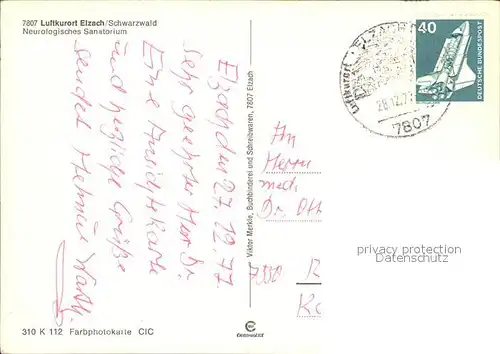 7807 Luftkurort Elzach/Schwarzwald
Neurologisches Sanatorium
Elzach den 27.12.77.
Sehr geehrter Herr Dr.
Eine Ansichtskarte
und herzliche Grüße
sendet Helmut
Viktor Merkle, Buchbinderei und Schreibwaren, 7807 Elzach
Luftkurort · ELZACH
28.12.77
7807
40
DEUTSCHE BUNDESPOST
An
Herrn
med
Dr.
privacy protection
ansichtskarten-lexikon.de
310 K 112 Farbphotokarte CIC